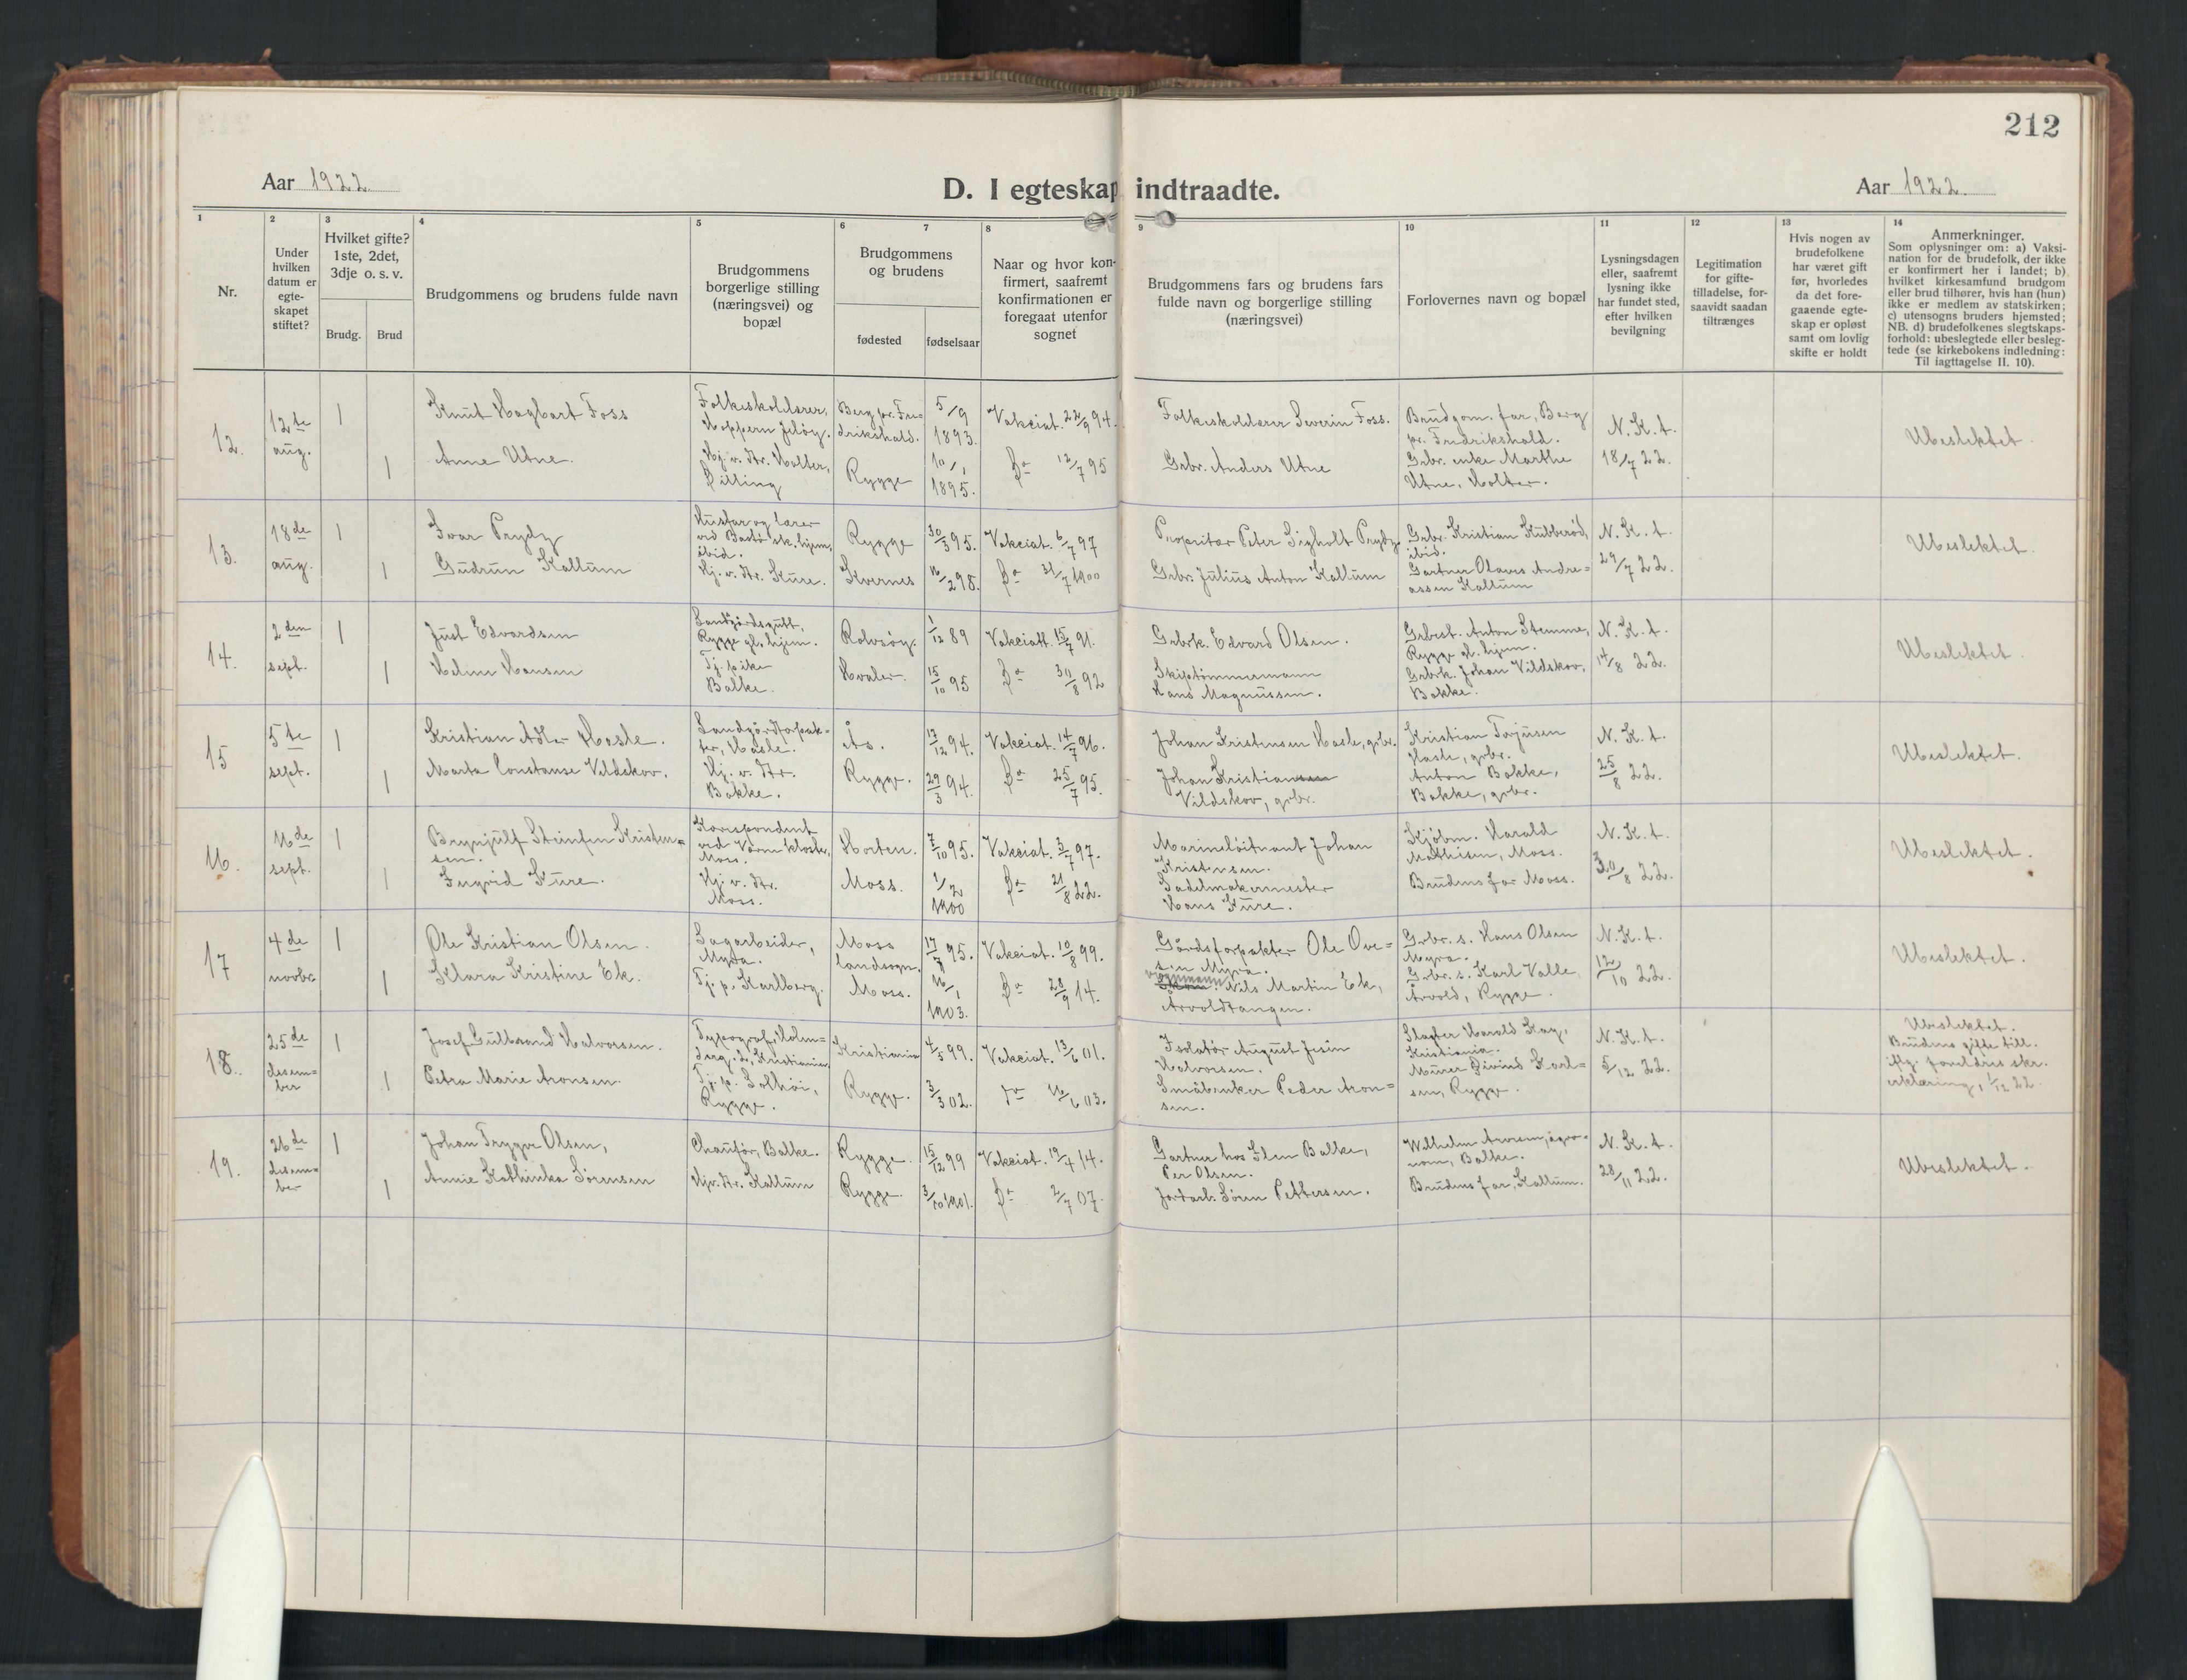 212
Aar 1922.
D. I egteskap indtraadte.
Aar 1922.
1
2
3
4
5
6
7
8
9
10
11
12
13
14
Nr.
Under
hvilken
datum er
egte-
skapet
stiftet?
Hvilket gifte?
1ste, 2det,
3dje o. s. v.
Brudg.
Brud
Brudgommens og brudens fulde navn
Brudgommens
borgerlige stilling
(næringsvei) og
bopæl
Brudgommens
og brudens
fødested
fødselsaar
Naar og hvor kon-
firmert, saafremt
konfirmationen er
foregaat utenfor
sognet
Brudgommens fars og brudens fars
fulde navn og borgerlige stilling
(næringsvei)
Forlovernes navn og bopæl
Lysningsdagen
eller, saafremt
lysning ikke
har fundet sted,
efter hvilken
bevilgning
Legitimation
for gifte-
tilladelse, for-
saavidt saadan
tiltrænges
Hvis nogen av
brudefolkene
har været gift
før, hvorledes
da det fore-
gaaende egte-
skap er opløst
samt om lovlig
skifte er holdt
Anmerkninger.
Som oplysninger om: a) Vaksi-
nation for de brudefolk, der ikke
er konfirmert her i landet; b)
hvilket kirkesamfund brudgom
eller brud tilhører, hvis han (hun)
ikke er medlem av statskirken;
c) utensogns bruders hjemsted;
NB. d) brudefolkenes slegtskaps-
forhold: ubeslegtede eller besleg-
tede (se kirkebokens indledning:
Til iagttagelse II. 10).
12.
12te
aug.
1
1
Knut Hagbart Foss
Anne Utne.
Folkeskolelærer,
Hoppern Jeløy.
Hj. v. str. Holter,
Dilling
Berg pr. Fre-
drikshald.
Rygge
5/9
1893.
10/1
1895.
Vakciat. 22/9 94.
Do 12/7 95
Folkeskolelærer Severin Foss.
Grbr. Anders Utne
Brudgom. far, Berg
pr. Fredrikshald.
Grbr. enke Marthe
Utne, Holter.
N. K. t.
18/7 22.
Ubeslektet.
13.
18de
aug.
1
1
Ivar Prydz
Gudrun Kallum
Husfar og lærer
ved Bastø sk. hjem,
ibid.
Hj. v. str. Kure.
Rygge
Kvernes
30/3 95.
16/2 98.
Vakciat. 6/7 97
Do 31/7 1900
Propritær Peter Sigholt Prydz
Grbr. Julius Anton Kallum
Grbr. Kristian Kubberød,
ibid.
Gartner Olaves Andre=
assen Kallum
N. K. t.
29/7 22.
Ubeslektet.
14.
2den
sept.
1
1
Just Edvardsen
Helene Hansen
Rygge gl. hjem.
Tj. pike
Balke.
Rolvsøy.
Hvaler.
1/12 89
15/10 95
Vakciatt. 15/7 91.
Do 30/8 92
Grbrk. Edvard Olsen.
Skiptømmermann
Hans Magnussen.
Grbest. Anton Stemme,
Rygge gl. hjem.
Grbrk. Johan Vildskov,
Bakke.
N. K. t.
14/8 22.
Ubeslektet.
15
5te
sept.
1
1
Kristian Adler Hasle.
Marta Constanse Vildskov.
Landgårdforpak-
ter, Hasle.
Hj. v. str.
Bakke.
Ås.
Rygge.
17/12 94.
29/3 94.
Vakciat. 14/7 96.
Do 25/7 95.
Johan Kristensen Hasle, grbr.
Johan Kristiansen
Vildskov, grbr.
Kristian Torjusen
Hasle, grbr.
Anton Bakke,
Bakke, grbr.
N. K. t.
25/8 22.
Ubeslektet.
16.
16de
sept.
1
1
Brynjulf Steinfen Kristen=
sen.
Ingrid Kure.
Korrespondent
ved Værne kloster,
Moss.
Hj. v. str.
Moss.
Horten.
Moss.
7/10 95.
1/2
1900
Vakciat. 3/7 97.
Do 21/8 22.
Marineløitnant Johan
Kristensen.
Sadelmakermester
Hans Kure.
Kjøbm. Harald
Mathisen, Moss.
Brudens far Moss.
N. K. t.
30/8 22.
Ubeslektet.
17
4de
novbr.
1
1
Ole Kristian Olsen.
Klara Kristine Ek.
Sagarbeider,
Myra.
Tj. p. Karlberg.
Moss
landsogn.
Moss.
17/7 95.
16/1
1903.
Vakciat. 10/8 99.
Do 28/9 14.
Gårdsforpakter Ole Ove=
sen Myra.
Nils Martin Ek,
Årvoldtangen.
Grbr. s. Hans Olsen
Myra.
Grbr. s. Karl Valle,
Årvold, Rygge.
N. K. t.
12/10 22.
Ubeslektet.
18.
25de
desem=
ber
1
1
Josef Gulbrand Halvorsen.
Petra Marie Aronsen.
Typograf, Holen=
berg. 2, Kristiania.
Tj. p. Solhøi,
Rygge.
Kristiania
Rygge.
4/5 99.
3/3 02.
Vakciat. 13/6 01.
Do 16/6 03.
Isolatør August Jesin
Halvorsen.
Småbruker Peder Aron=
sen.
Slagter Harald Kay,
Kristiania.
Murer Øivind Karl=
sen, Rygge.
N. K. t.
5/12 22.
Ubeslektet.
Brudens gifte till.
iflg. foreldres skr.
erklæring, 1/12 22.
19.
26de
desem=
ber
1
1
Johan Trygve Olsen,
Annie Kathinka Sørensen
Chauffør, Balke.
Hj. v. str. Kallum
Rygge.
Rygge
15/12 99
3/10 1901.
Vakciat. 19/7 14.
Do 2/7 07.
Gartner hos Elen Balke,
Per Olsen.
Jordarb. Søren Pettersen.
Wilhelm Arnesen, agro-
nom, Balke.
Brudens far, Kallum.
N. K. t.
28/11 22.
Ubeslektet.